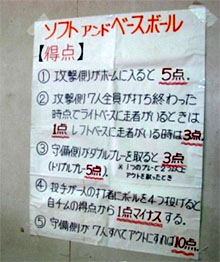 ソフトアンドベースボール
【得点】
① 攻撃側がホームに入ると 5点.
② 攻撃側 7人全員が打ち終わった
時点でライトベースに走者がいるときは
1点 レフトベースに走者がいる時は 3点.
③ 守備側がダブルプレーを取ると 3点
(トリプルプレー 5点). ※ 1つのプレーで2つ以上
アウトを取ったとき
④ 投手が一人の打者にボールを4つ投げると
自チームの得点から 1点マイナスする.
⑤ 守備側が 7人すべてアウトにすれば 10点.